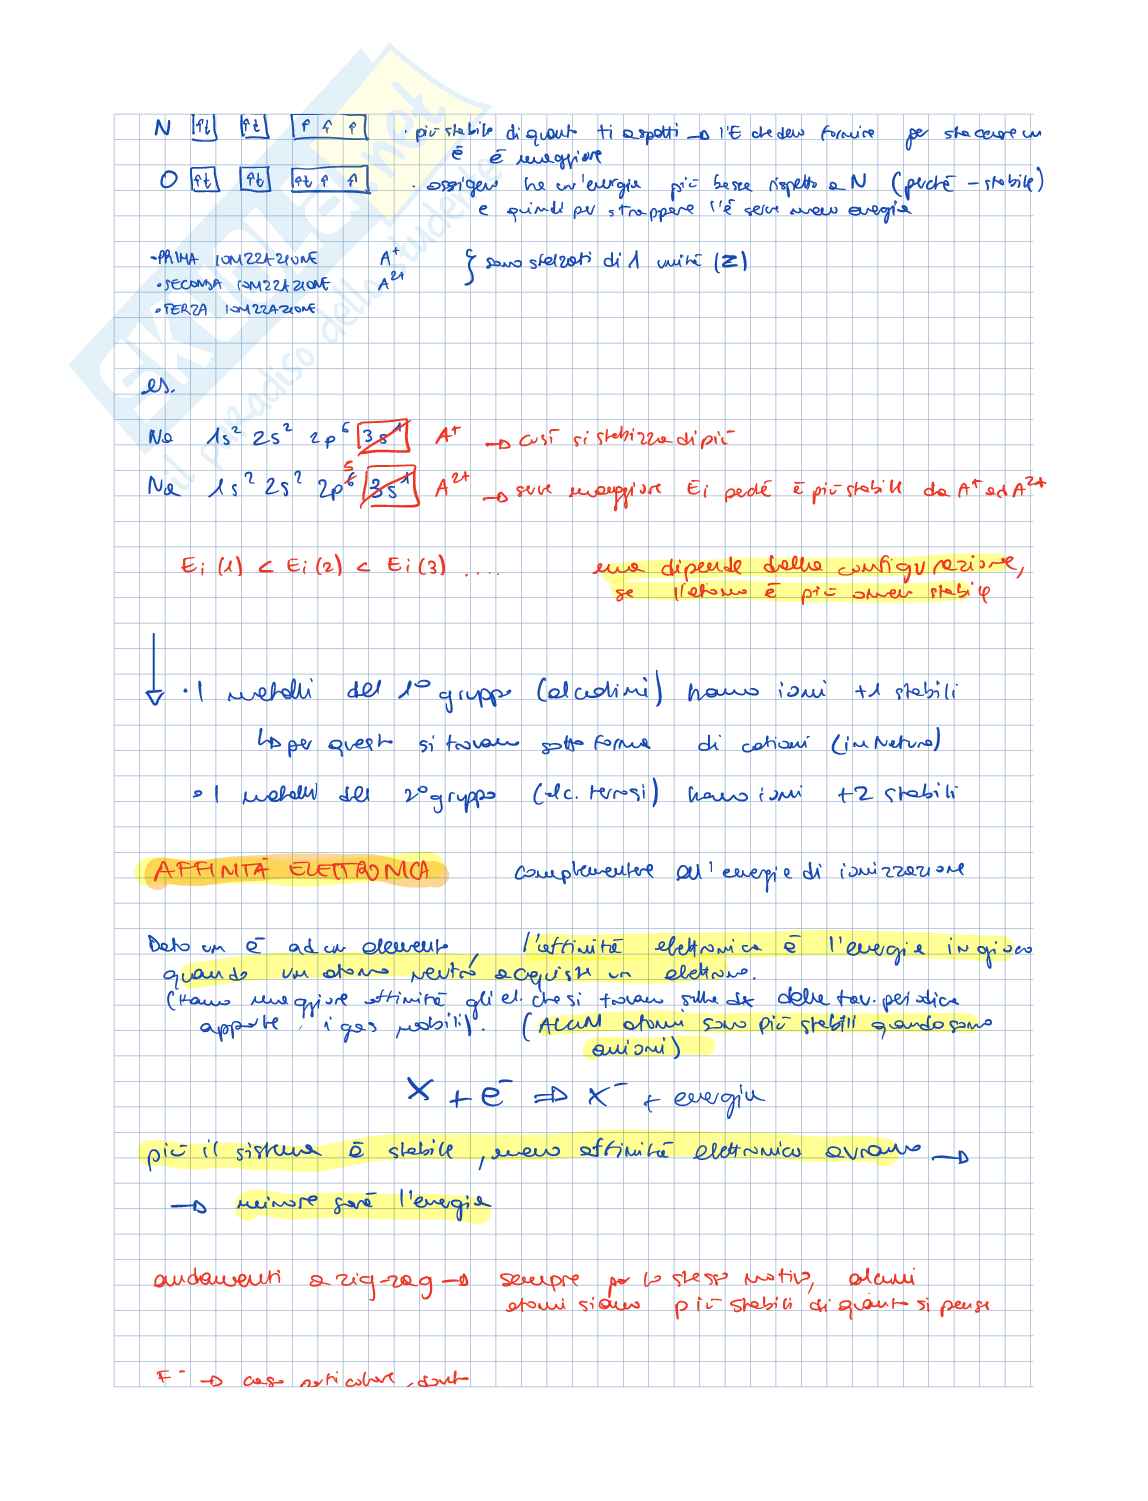 N ↑↓ ↑↓ ↑ ↑ ↑ · più stabile di quanto ti aspetti → l'E che devo fornire per staccare un
ē è maggiore
O ↑↓ ↑↓ ↑↓ ↑ ↑ · ossigeno ha un'energia più bassa rispetto a N (perché - stabile)
e quindi per strappare l'ē serve meno energia
· PRIMA IONIZZAZIONE A⁺ } sono sfalzati di 1 unità (Z)
· SECONDA IONIZZAZIONE A²⁺
· TERZA IONIZZAZIONE
es.
Na 1s² 2s² 2p⁶ 3s¹ A⁺ → così si stabilizza di più
Na 1s² 2s² 2p⁶ ⁵ 3s¹ A²⁺ → serve maggiore Ei perché è più stabile da A⁺ ad A²⁺
Ei (1) < Ei (2) < Ei (3) .... ma dipende dalla configurazione,
se l'atomo è più o meno stabile
· I metalli del 1° gruppo (alcalini) hanno ioni +1 stabili
↳ per questo si trovano sotto forma di cationi (in Natura)
· I metalli del 2° gruppo (alc. terrosi) hanno ioni +2 stabili
AFFINITÀ ELETTRONICA complementare all'energia di ionizzazione
Dato un ē ad un elemento, l'affinità elettronica è l'energia in gioco
quando un atomo neutro acquista un elettrone.
(Hanno maggiore affinità gli el. che si trovano sulla dx della tav. periodica
apparte i gas nobili). (Alcuni atomi sono più stabili quando sono
anioni)
X + e⁻ ⇒ X⁻ + energia
più il sistema è stabile, meno affinità elettronica avranno →
→ minore sarà l'energia
andamenti a zig-zag → sempre per lo stesso motivo, alcuni
atomi siano più stabili di quanto si pensi
F⁻ → caso particolare, dove
SKUOLA.net
il paradiso dello studente